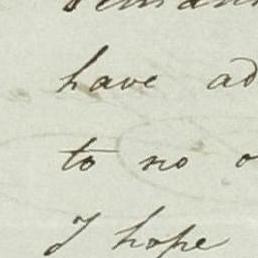 have ad
to no o
I hope